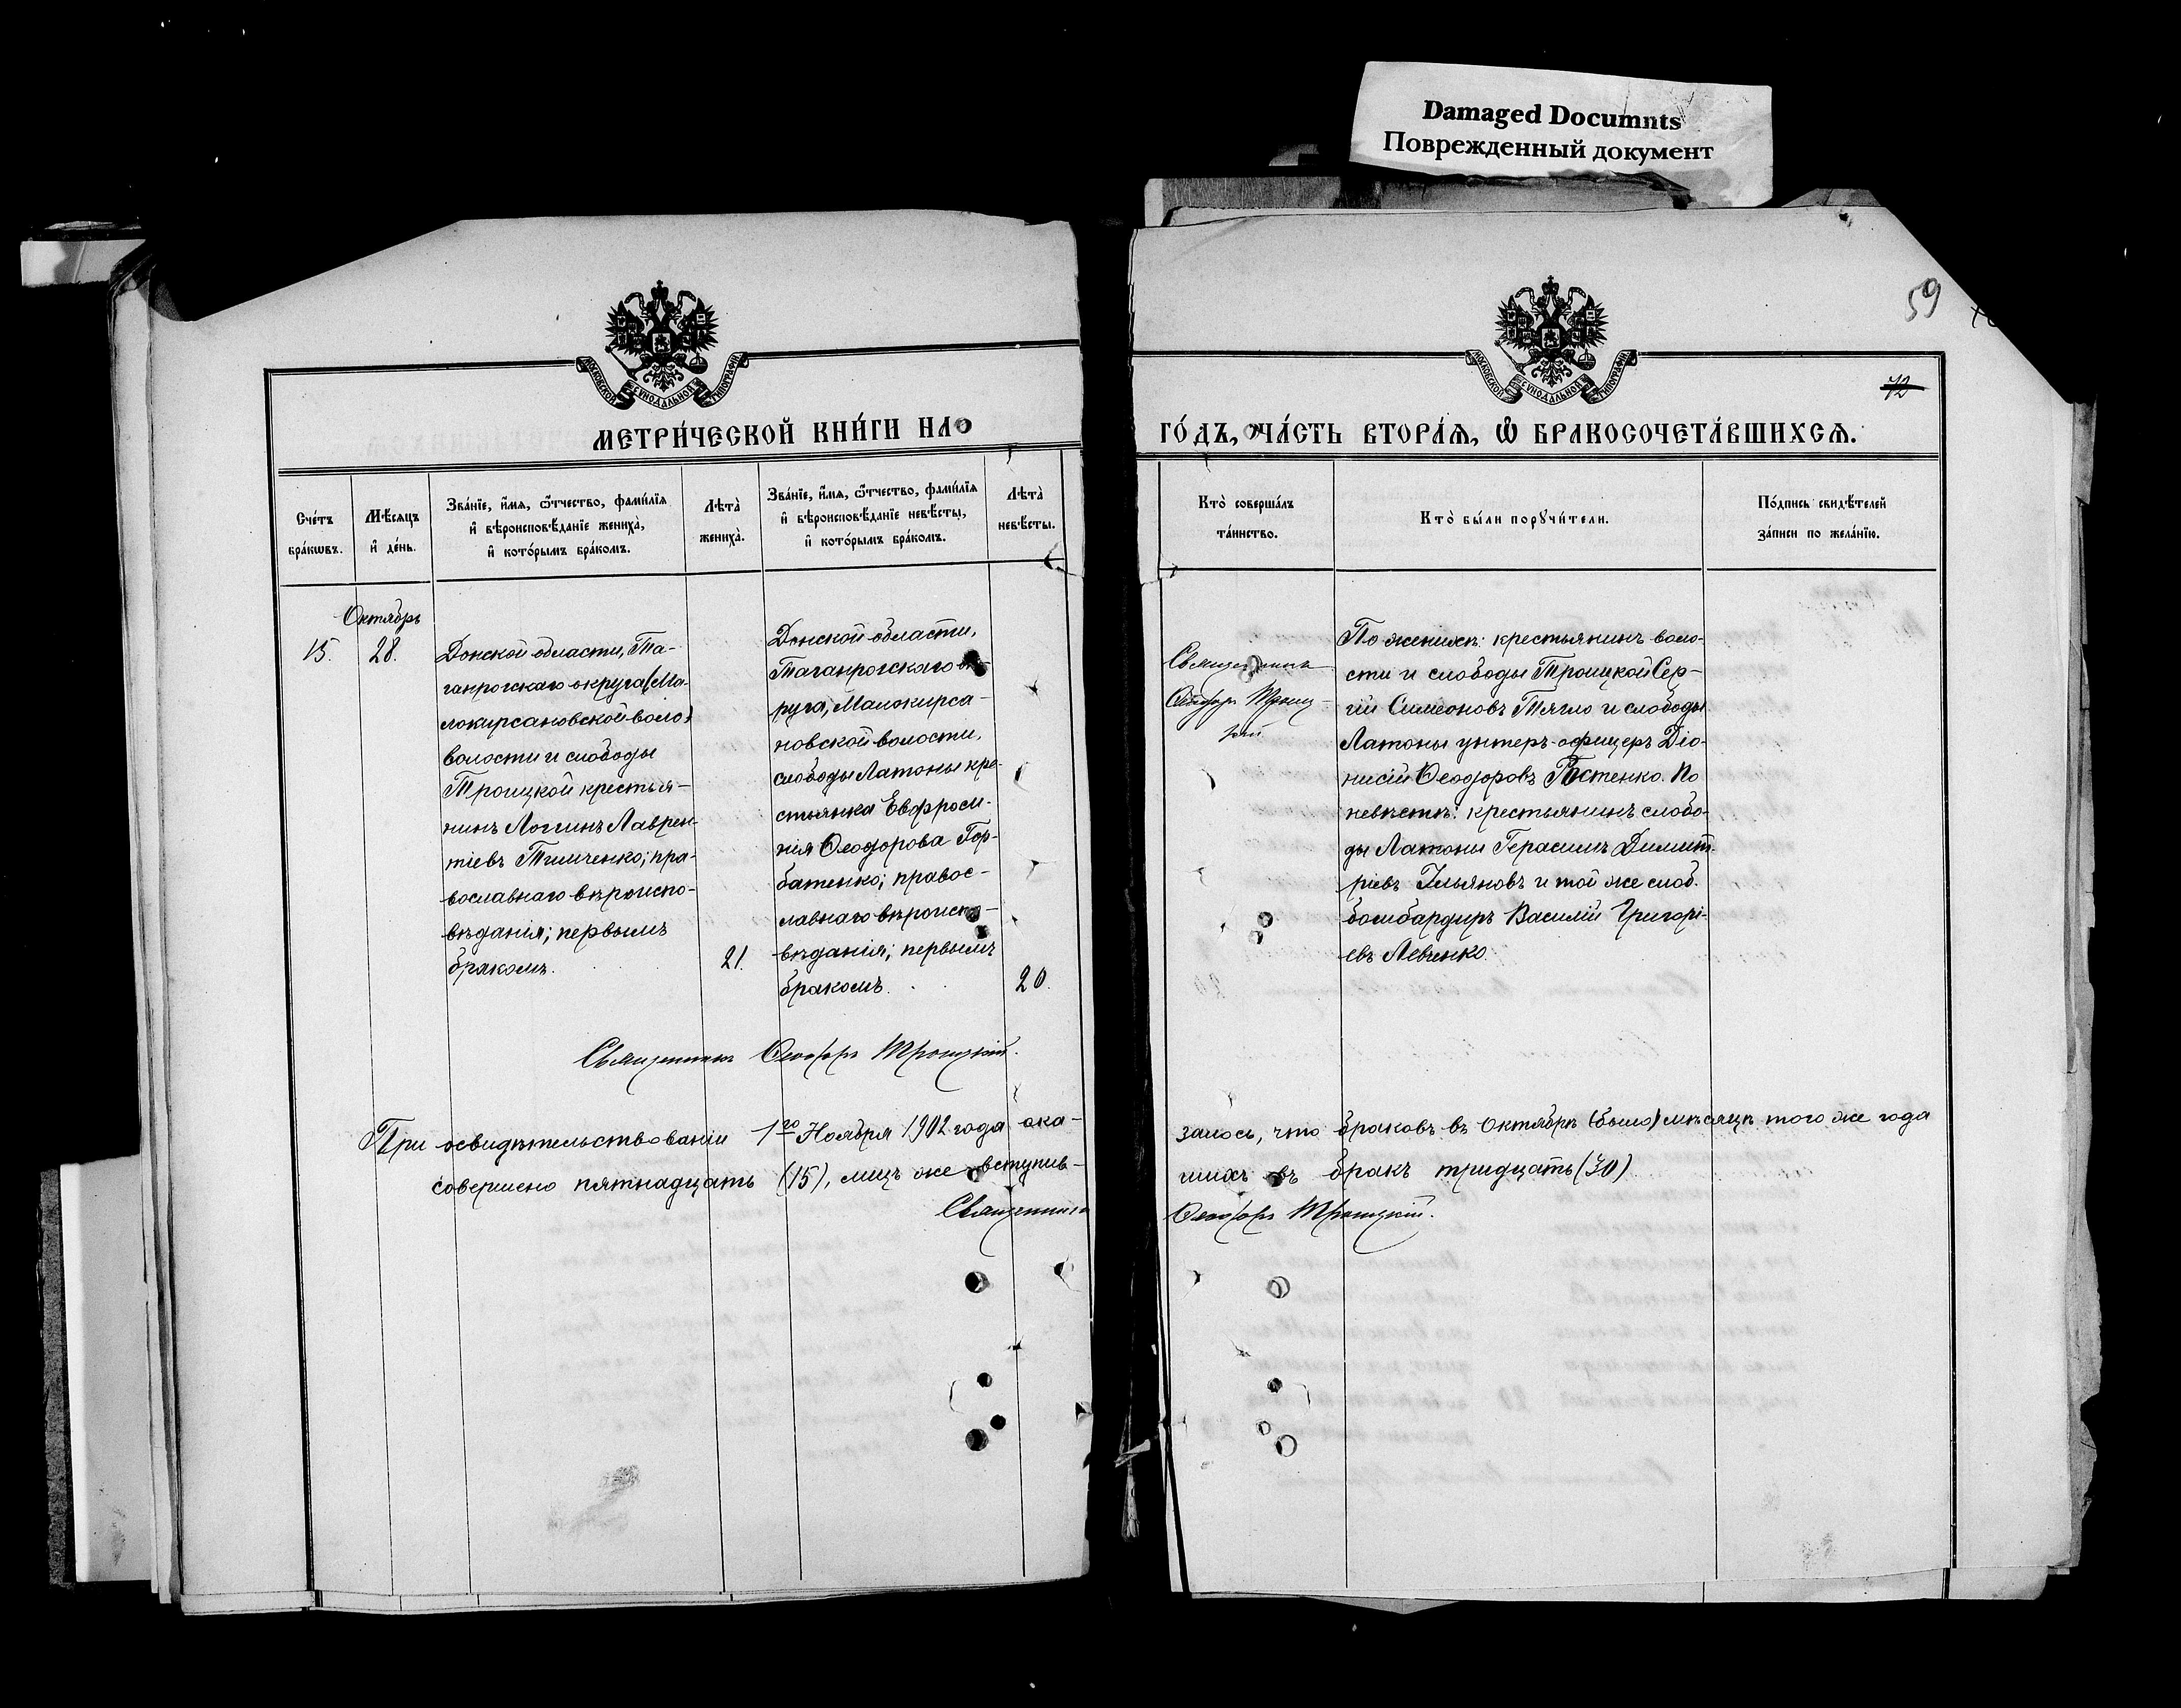 Damaged Documnts
Поврежденный документ
59
МОСКОВСКОЙ СѴНОДАЛЬНОЙ ТИПОГРАФІИ
МОСКОВСКОЙ СѴНОДАЛЬНОЙ ТИПОГРАФІИ
72
МЕТРИ́ЧЕСКОЙ КНИ́ГИ НА
ГО́ДЪ, ЧА́СТЬ ВТОРА́Я, Ѽ БРАКОСОЧЕТА́ВШИХСЯ.
Сче́тъ
бра́кѡвъ.
Мѣ́сяцъ
и҆ де́нь.
Зва́нїе, и҆́мѧ, ѻ҆́тчество, фами́лїѧ
и҆ вѣроисповѣ́данїе жениха̀,
и҆ кото́рымъ бра́комъ.
Лѣта̀
жениха̀.
Зва́нїе, и҆́мѧ, ѻ҆́тчество, фами́лїѧ
и҆ вѣроисповѣ́данїе невѣ́сты,
и҆ кото́рымъ бра́комъ.
Лѣта̀
невѣ́сты.
Кто̀ соверша́лъ
та́инство.
Кто̀ бы́ли порꙋчи́тели.
По́дпись свидѣ́телей
за́писи по жела́нїю.
Октябрь
15.
28.
Донской области, Та-
ганрогскаго округа (Ма-
локирсановской воло)
волости и слободы
Троицкой крестья-
нинъ Логгинъ Лаврен-
тіевъ Тимченко; пра-
вославнаго вѣроиспо-
вѣданія; первымъ
бракомъ.
21.
Донской области,
Таганрогскаго ок-
руга, Малокирса-
новской волости,
слободы Латоны кре-
стьянка Евфроси-
нія Ѳеодорова Гор-
батенко; правос-
лавнаго вѣроиспо-
вѣданія; первымъ
бракомъ.
20.
Священникъ
Ѳеодоръ Троиц-
кій
По женихѣ: крестьянинъ воло-
сти и слободы Троицкой Сер-
гій Симеоновъ Тягло и слободы
Латоны унтеръ-офицеръ Діо-
нисій Ѳеодоровъ Костенко. По
невѣстѣ: крестьянинъ слобо-
ды Латоны Герасимъ Димит-
ріевъ Ильяновъ и той же слоб.
бомбардиръ Василій Григорі-
евъ Левченко.
Священникъ Ѳеодоръ Троицкій.
При освидѣтельствованіи 1го Ноября 1902 года ока-
залось, что браковъ въ Октябрѣ (было) мѣсяцѣ того же года
совершено пятнадцать (15), лицъ же вступив-
шихъ въ бракъ тридцать (30)
Священникъ
Ѳеодоръ Троицкій.